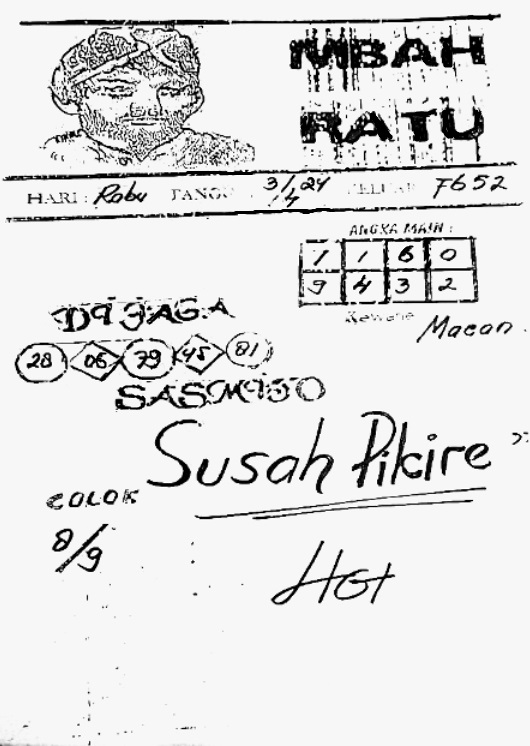 MBAH
RATU
HARI : Rabu TANGG 31/24 KELUAR 7652
/4
ANGKA MAIN :
1 1 6 0
9 4 3 2
Kewane Macan.
DIJAGA
28 06 79 45 81
SASMITO
Susah Pikire
COLOK
8/9